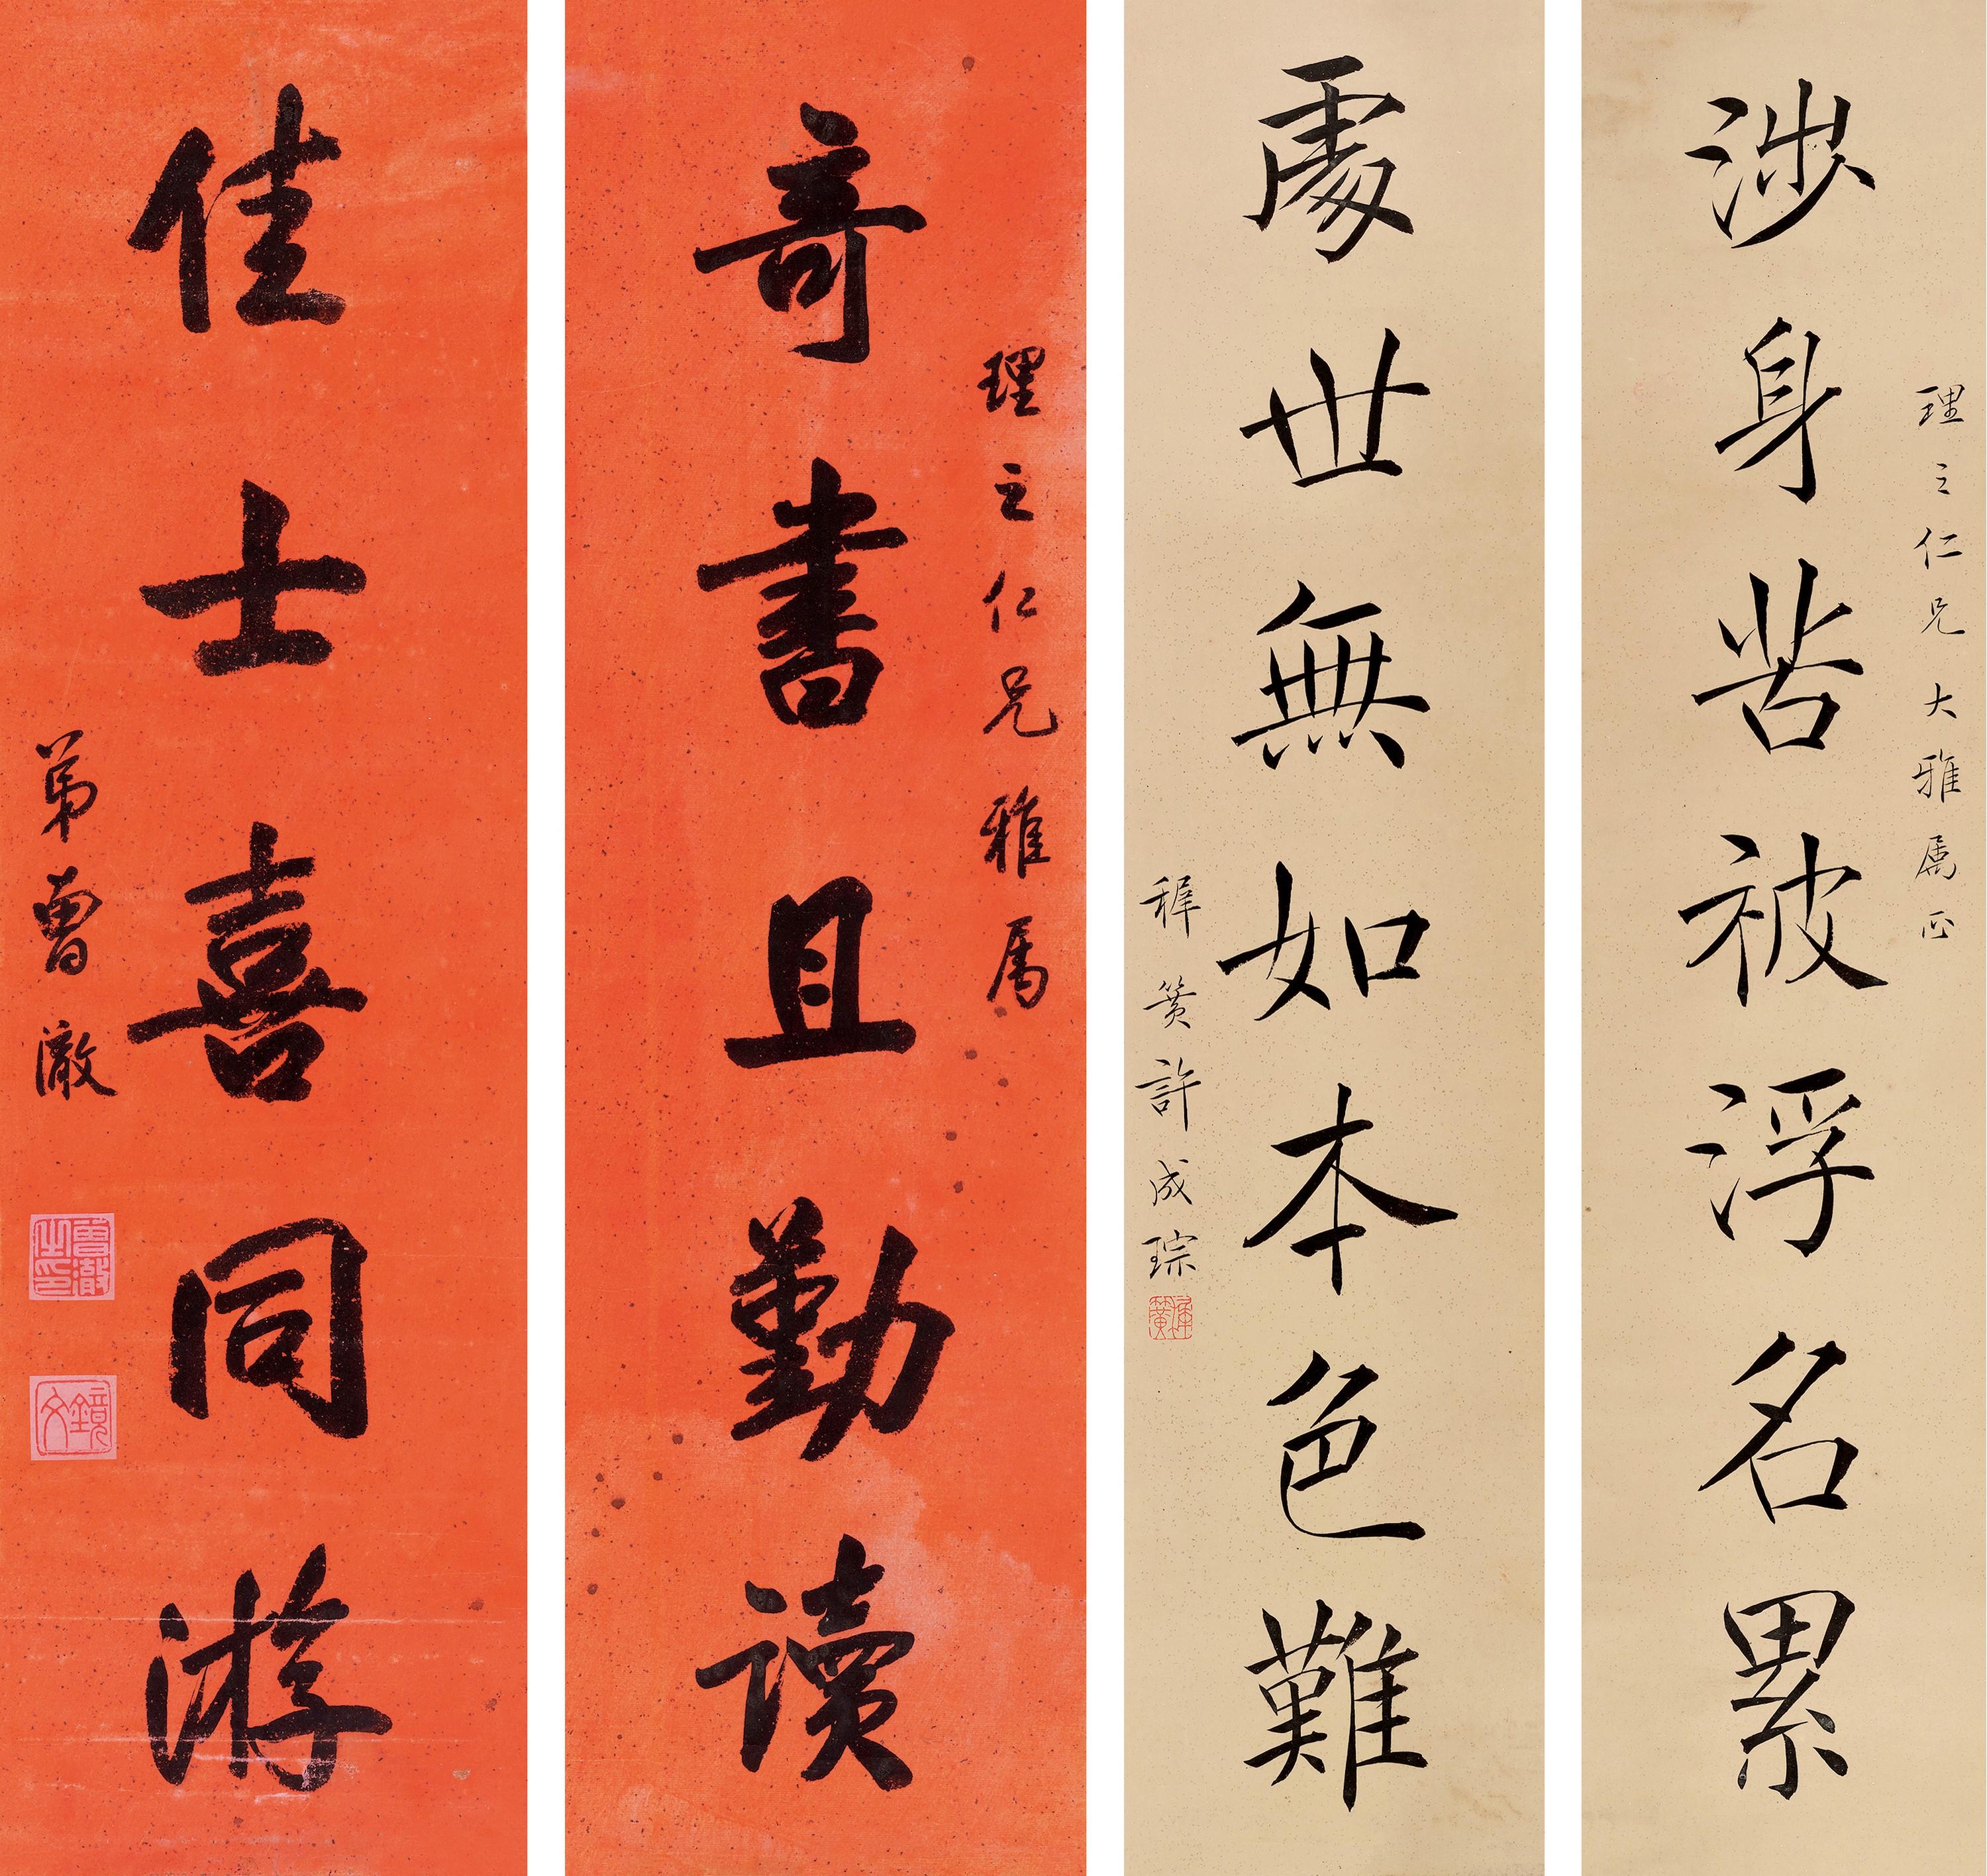 理之仁兄大雅属正
涉身苦被浮名累
處世無如本色難
稺篔許成琮
理之仁兄雅属
奇書且勤读
佳士喜同游
弟曹澂
曹澂之印
鏡文